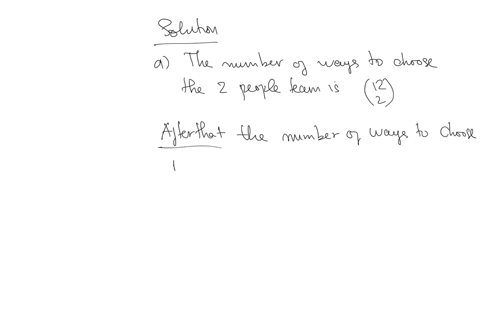 Solution
a) The number of ways to choose
the 2 people team is (12 2)
After that the number of ways to choose